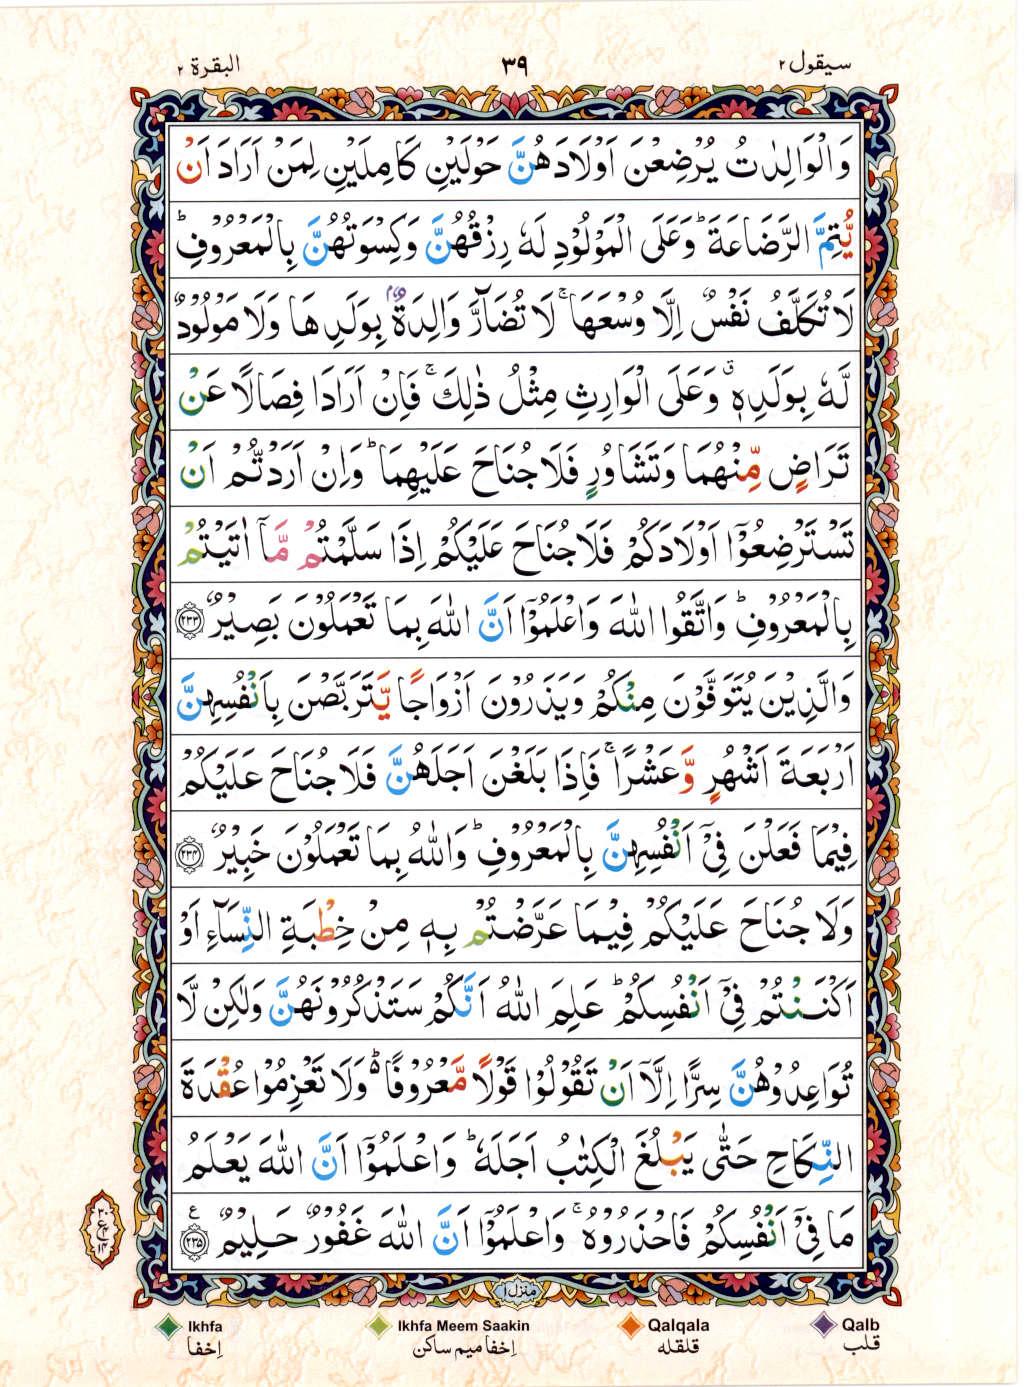 سيقول ٢
٣٩
البقرة ٢
وَالْوَالِدٰتُ يُرْضِعْنَ اَوْلَادَهُنَّ حَوْلَيْنِ كَامِلَيْنِ لِمَنْ اَرَادَ اَنْ
يُّتِمَّ الرَّضَاعَةَ ؕ وَعَلَى الْمَوْلُوْدِ لَهٗ رِزْقُهُنَّ وَكِسْوَتُهُنَّ بِالْمَعْرُوْفِ ؕ
لَا تُكَلَّفُ نَفْسٌ اِلَّا وُسْعَهَا ۚ لَا تُضَآرَّ وَالِدَةٌۢ بِوَلَدِهَا وَلَا مَوْلُوْدٌ
لَّهٗ بِوَلَدِهٖ ۗ وَعَلَى الْوَارِثِ مِثْلُ ذٰلِكَ ۚ فَاِنْ اَرَادَا فِصَالًا عَنْ
تَرَاضٍ مِّنْهُمَا وَتَشَاوُرٍ فَلَا جُنَاحَ عَلَيْهِمَا ؕ وَاِنْ اَرَدْتُّمْ اَنْ
تَسْتَرْضِعُوْۤا اَوْلَادَكُمْ فَلَا جُنَاحَ عَلَيْكُمْ اِذَا سَلَّمْتُمْ مَّاۤ اٰتَيْتُمْ
بِالْمَعْرُوْفِ ؕ وَاتَّقُوا اللّٰهَ وَاعْلَمُوْۤا اَنَّ اللّٰهَ بِمَا تَعْمَلُوْنَ بَصِيْرٌ ٢٣٣
وَالَّذِيْنَ يُتَوَفَّوْنَ مِنْكُمْ وَيَذَرُوْنَ اَزْوَاجًا يَّتَرَبَّصْنَ بِاَنْفُسِهِنَّ
اَرْبَعَةَ اَشْهُرٍ وَّعَشْرًا ۚ فَاِذَا بَلَغْنَ اَجَلَهُنَّ فَلَا جُنَاحَ عَلَيْكُمْ
فِيْمَا فَعَلْنَ فِيْۤ اَنْفُسِهِنَّ بِالْمَعْرُوْفِ ؕ وَاللّٰهُ بِمَا تَعْمَلُوْنَ خَبِيْرٌ ٢٣٤
وَلَا جُنَاحَ عَلَيْكُمْ فِيْمَا عَرَّضْتُمْ بِهٖ مِنْ خِطْبَةِ النِّسَآءِ اَوْ
اَكْنَنْتُمْ فِيْۤ اَنْفُسِكُمْ ؕ عَلِمَ اللّٰهُ اَنَّكُمْ سَتَذْكُرُوْنَهُنَّ وَلٰكِنْ لَّا
تُوَاعِدُوْهُنَّ سِرًّا اِلَّاۤ اَنْ تَقُوْلُوْا قَوْلًا مَّعْرُوْفًا ؕ۬ وَلَا تَعْزِمُوْا عُقْدَةَ
النِّكَاحِ حَتّٰى يَبْلُغَ الْكِتٰبُ اَجَلَهٗ ؕ وَاعْلَمُوْۤا اَنَّ اللّٰهَ يَعْلَمُ
مَا فِيْۤ اَنْفُسِكُمْ فَاحْذَرُوْهُ ۚ وَاعْلَمُوْۤا اَنَّ اللّٰهَ غَفُوْرٌ حَلِيْمٌ ٢٣٥ ع
٣٠
ع
١٤
منزل ١
Ikhfa
Ikhfa Meem Saakin
Qalqala
Qalb
إخفا
إخفا ميم ساكن
قلقله
قلب